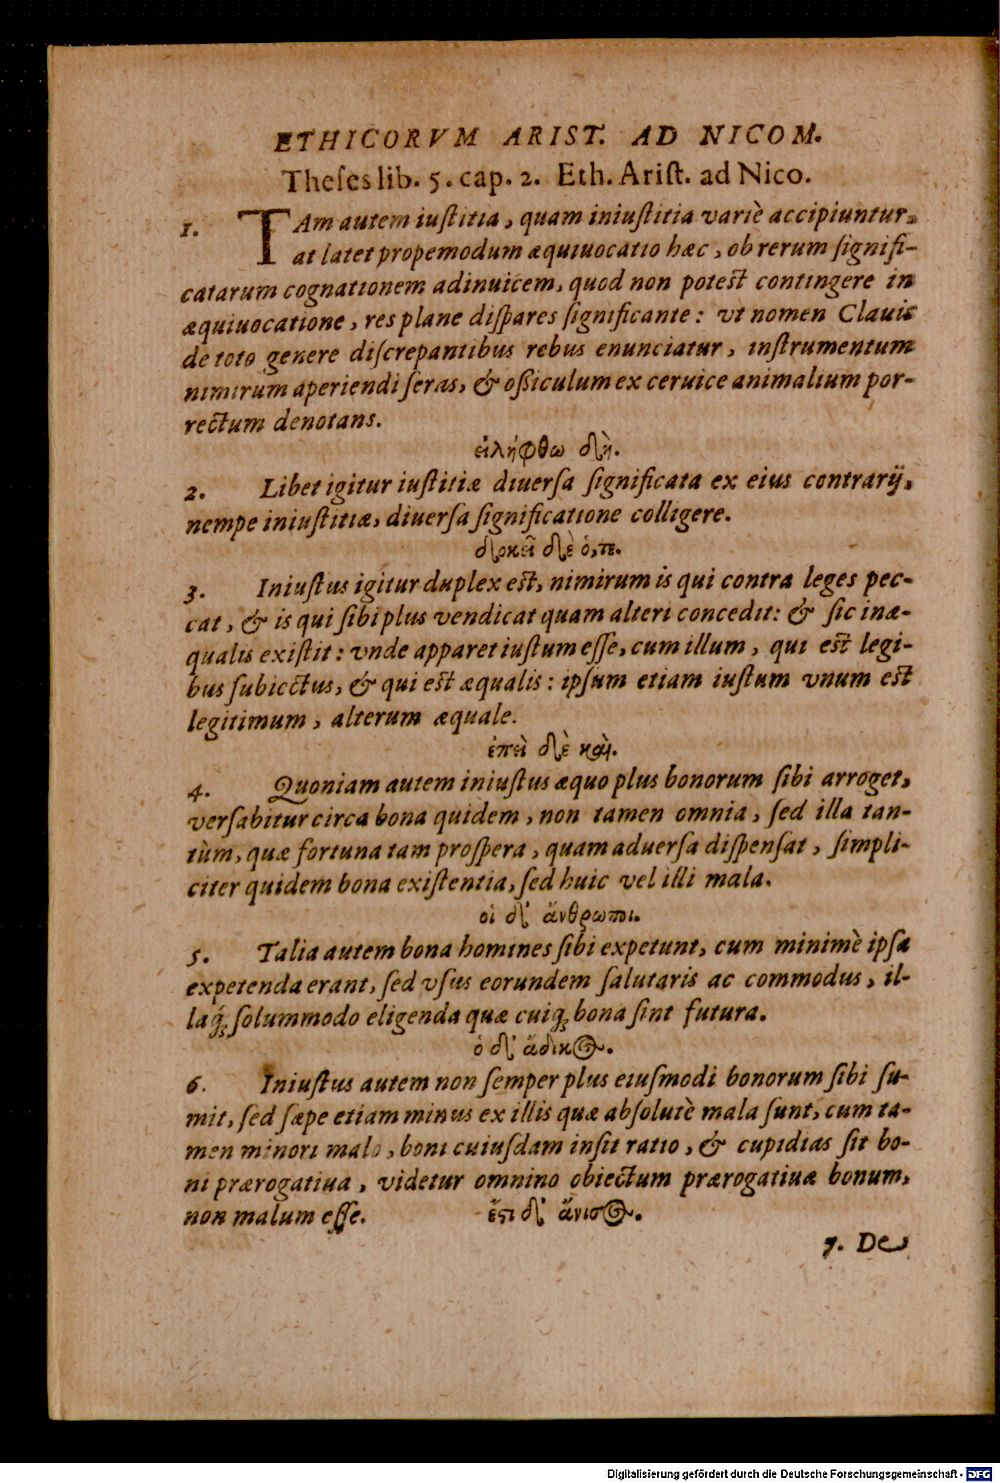 ETHICORVM ARIST. AD NICOM.
Theses lib. 5. cap. 2. Eth. Arist. ad Nico.
1. TAm autem iuſtitia, quam iniuſtitia variè accipiuntur,
at latet propemodum æquiuocatio hæc, ob rerum ſignifi-
catarum cognationem adinuicem, quod non poteſt contingere in
æquiuocatione, res plane diſpares ſignificante: vt nomen Clauis
de toto genere diſcrepantibus rebus enunciatur, inſtrumentum
nimirum aperiendi ſeras, & oſſiculum ex ceruice animalium por-
rectum denotans.
εἰλήφθω δή.
2. Libet igitur iuſtitiæ diuerſa ſignificata ex eius contrarij,
nempe iniuſtitiæ, diuerſa ſignificatione colligere.
δοκεῖ δὲ ὅ,τε.
3. Iniuſtus igitur duplex eſt, nimirum is qui contra leges pec-
cat, & is qui ſibi plus vendicat quam alteri concedit: & ſic inæ-
qualis exiſtit: vnde apparet iuſtum eſſe, cum illum, qui eſt legi-
bus ſubiectus, & qui eſt æqualis: ipſum etiam iuſtum vnum eſt
legitimum, alterum æquale.
ἐπεὶ δὲ καὶ.
4. Quoniam autem iniuſtus æquo plus bonorum ſibi arroget,
verſabitur circa bona quidem, non tamen omnia, ſed illa tan-
tùm, quæ fortuna tam proſpera, quam aduerſa diſpenſat, ſimpli-
citer quidem bona exiſtentia, ſed huic vel illi mala.
οἱ δ' ἄνθρωποι.
5. Talia autem bona homines ſibi expetunt, cum minimè ipſa
expetenda erant, ſed vſus eorundem ſalutaris ac commodus, il-
laq́; ſolummodo eligenda quæ cuiq; bona ſint futura.
ὁ δ' ἄδικος.
6. Iniuſtus autem non ſemper plus eiuſmodi bonorum ſibi ſu-
mit, ſed ſæpe etiam minus ex illis quæ abſolutè mala ſunt, cum ta-
men minori malo, boni cuiuſdam inſit ratio, & cupidias ſit bo-
ni prærogatiua, videtur omnino obiectum prærogatiuæ bonum,
non malum eſſe. ἔϛι δ' ἄνισος.
7. De
Digitalisierung gefördert durch die Deutsche Forschungsgemeinschaft - DFG